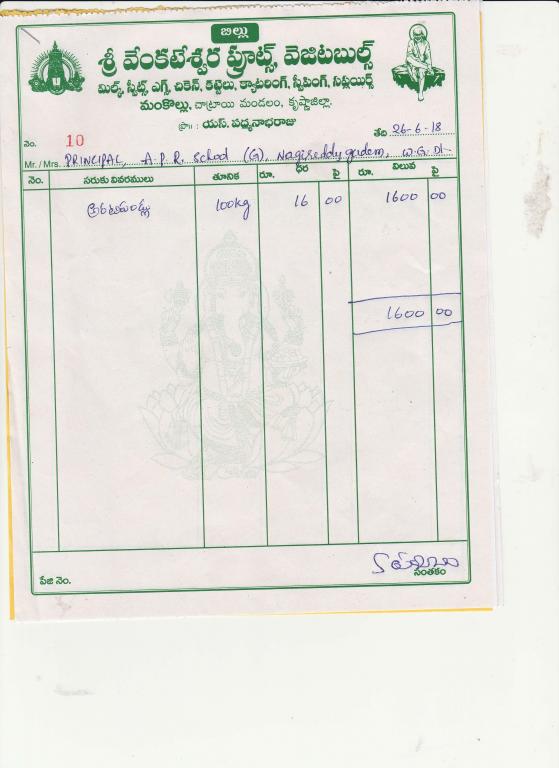 బిల్లు
శ్రీ వేంకటేశ్వర ఫ్రూట్స్, వెజిటబుల్స్
మిల్క్, స్వీట్స్, ఎగ్స్, చికెన్, కట్టెలు, క్యాటరింగ్, స్వీపింగ్, సప్లయర్స్
మంకొల్లు, చాట్రాయి మండలం, కృష్ణాజిల్లా.
ప్రొ॥ : యస్. పద్మనాభరాజు
నెం. 10 తేది 26-6-18
Mr. / Mrs. PRINCIPAL, A.P.R. School (G), Nagireddygudem, W.G. Dt.
నెం. సరుకు వివరములు తూనిక ధర రూ. పై విలువ రూ. పై
అరటిపండ్లు 100kg 16 00 1600 00
1600 00
పేజి నెం. సంతకం